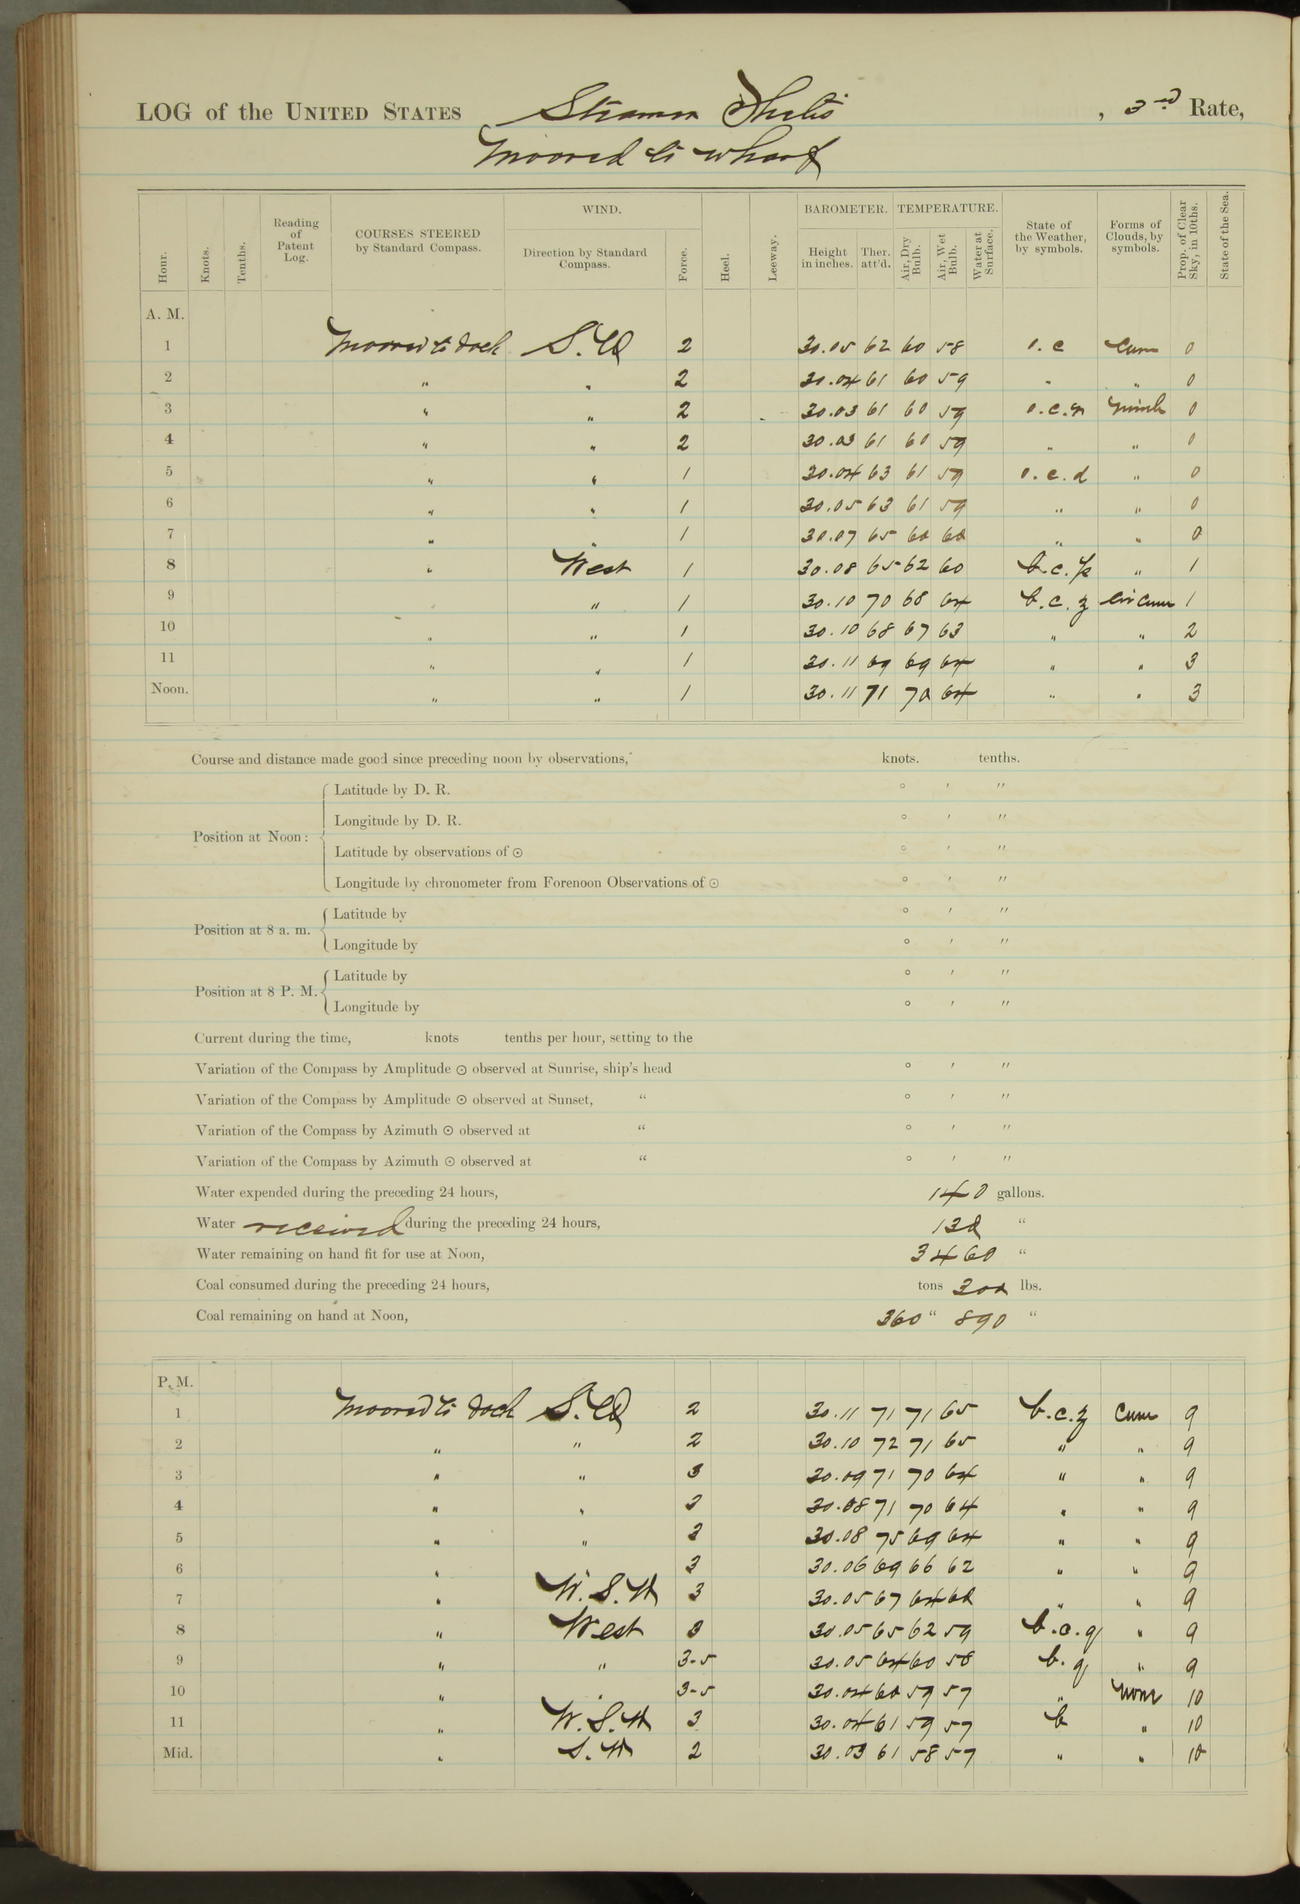 LOG of the UNITED STATES Steamer Thetis, 3rd Rate,
Moored to wharf
Hour. Knots. Tenths. Reading of Patent Log. COURSES STEERED by Standard Compass. WIND. Direction by Standard Compass. Force. Heel. Leeway. BAROMETER. Height in inches. Ther. att'd. TEMPERATURE. Air, Dry Bulb. Air, Wet Bulb. Water at Surface. State of the Weather, by symbols. Forms of Clouds, by symbols. Prop. of Clear Sky, in 10ths. State of the Sea.
A. M.
1 Moored to dock S.W 2 30.05 62 60 58 o.c Cum 0
2 " " 2 30.04 61 60 59 " " 0
3 " " 2 30.03 61 60 59 o.c.r nimb 0
4 " " 2 30.03 61 60 59 " " 0
5 " " 1 30.04 63 61 59 o.c.d " 0
6 " " 1 30.05 63 61 59 " " 0
7 " " 1 30.07 65 60 60 " " 0
8 " West 1 30.08 65 62 60 b.c. " 1
9 " 1 30.10 70 68 64 b.c.z Cir Cum 1
10 " " 1 30.10 68 67 63 " " 2
11 " " 1 30.11 69 69 64 " " 3
Noon. " " 1 30.11 71 70 64 " " 3
Course and distance made good since preceding noon by observations, knots. tenths.
Position at Noon: Latitude by D. R. ° ′ ″
Longitude by D. R. ° ′ ″
Latitude by observations of ⊙ ° ′ ″
Longitude by chronometer from Forenoon Observations of ⊙ ° ′ ″
Position at 8 a. m. Latitude by ° ′ ″
Longitude by ° ′ ″
Position at 8 P. M. Latitude by ° ′ ″
Longitude by ° ′ ″
Current during the time, knots tenths per hour, setting to the
Variation of the Compass by Amplitude ⊙ observed at Sunrise, ship's head ° ′ ″
Variation of the Compass by Amplitude ⊙ observed at Sunset, " ° ′ ″
Variation of the Compass by Azimuth ⊙ observed at " ° ′ ″
Variation of the Compass by Azimuth ⊙ observed at " ° ′ ″
Water expended during the preceding 24 hours, 140 gallons.
Water received during the preceding 24 hours, 130 "
Water remaining on hand fit for use at Noon, 3460 "
Coal consumed during the preceding 24 hours, tons 300 lbs.
Coal remaining on hand at Noon, 360 " 890 "
P. M.
1 Moored to dock S.W 2 30.11 71 71 65 b.c.z Cum 9
2 " " 2 30.10 72 71 65 " " 9
3 " " 3 30.09 71 70 64 " " 9
4 " " 3 30.08 71 70 64 " " 9
5 " " 3 30.08 75 69 64 " " 9
6 " 3 30.06 69 66 62 " " 9
7 " W.S.W 3 30.05 67 64 60 " " 9
8 " West 3 30.05 65 62 59 b.c.q " 9
9 " " 3-5 30.05 64 60 58 b.q " 9
10 " " 3-5 30.04 60 59 57 " none 10
11 " W.S.W 3 30.04 61 59 57 b " 10
Mid. " S.W 2 30.03 61 58 57 " " 10